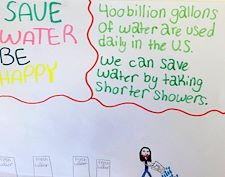 SAVE
WATER
BE
HAPPY
400 billion gallons
of water are used
daily in the U.S.
We can save
water by taking
shorter showers.